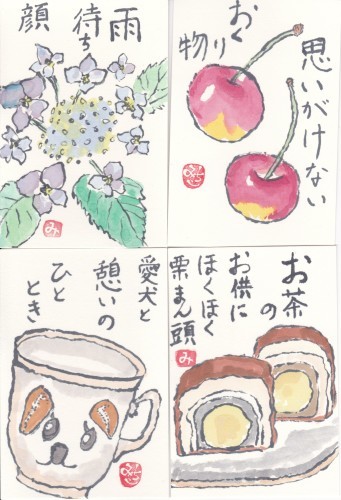 雨
待ち
顔
思いがけない
おくり
物
愛犬と
憩いの
ひと
とき
お茶
の
お供に
ほくほく
栗まん頭
み
み